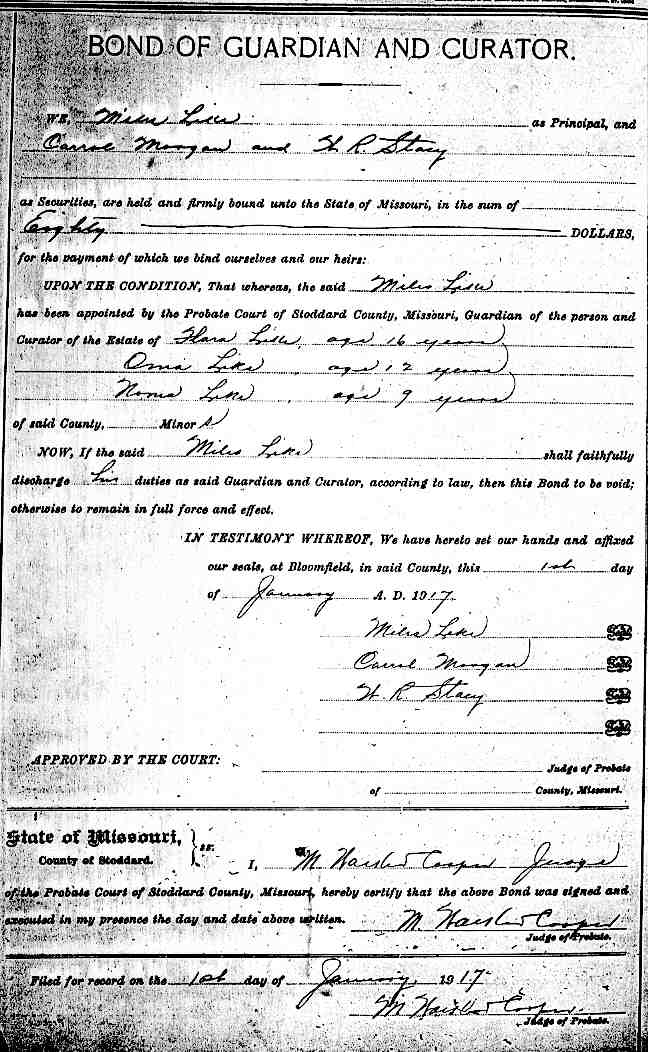 BOND OF GUARDIAN AND CURATOR.
WE, Miles Like as Principal, and
Carrol Morgan and H. R. Stacy
as Securities, are held and firmly bound unto the State of Missouri, in the sum of
Eighty DOLLARS,
for the payment of which we bind ourselves and our heirs:
UPON THE CONDITION, That whereas, the said Miles Like
has been appointed by the Probate Court of Stoddard County, Missouri, Guardian of the person and
Curator of the Estate of Flara Like, age 16 years
Oma Like, age 12 years
Noma Like, age 9 years
of said County, Minor s
NOW, If the said Miles Like shall faithfully
discharge his duties as said Guardian and Curator, according to law, then this Bond to be void;
otherwise to remain in full force and effect.
IN TESTIMONY WHEREOF, We have hereto set our hands and affixed
our seals, at Bloomfield, in said County, this 1st day
of January A. D. 1917.
Miles Like Seal
Carrol Morgan Seal
H. R. Stacy Seal
Seal
APPROVED BY THE COURT:
Judge of Probate
of County, Missouri.
State of Missouri,
County of Stoddard. } ss. I, M Cooper Judge
of the Probate Court of Stoddard County, Missouri, hereby certify that the above Bond was signed and
executed in my presence the day and date above written. M Cooper
Judge of Probate.
Filed for record on the 1st day of January, 1917
M Cooper
Judge of Probate.